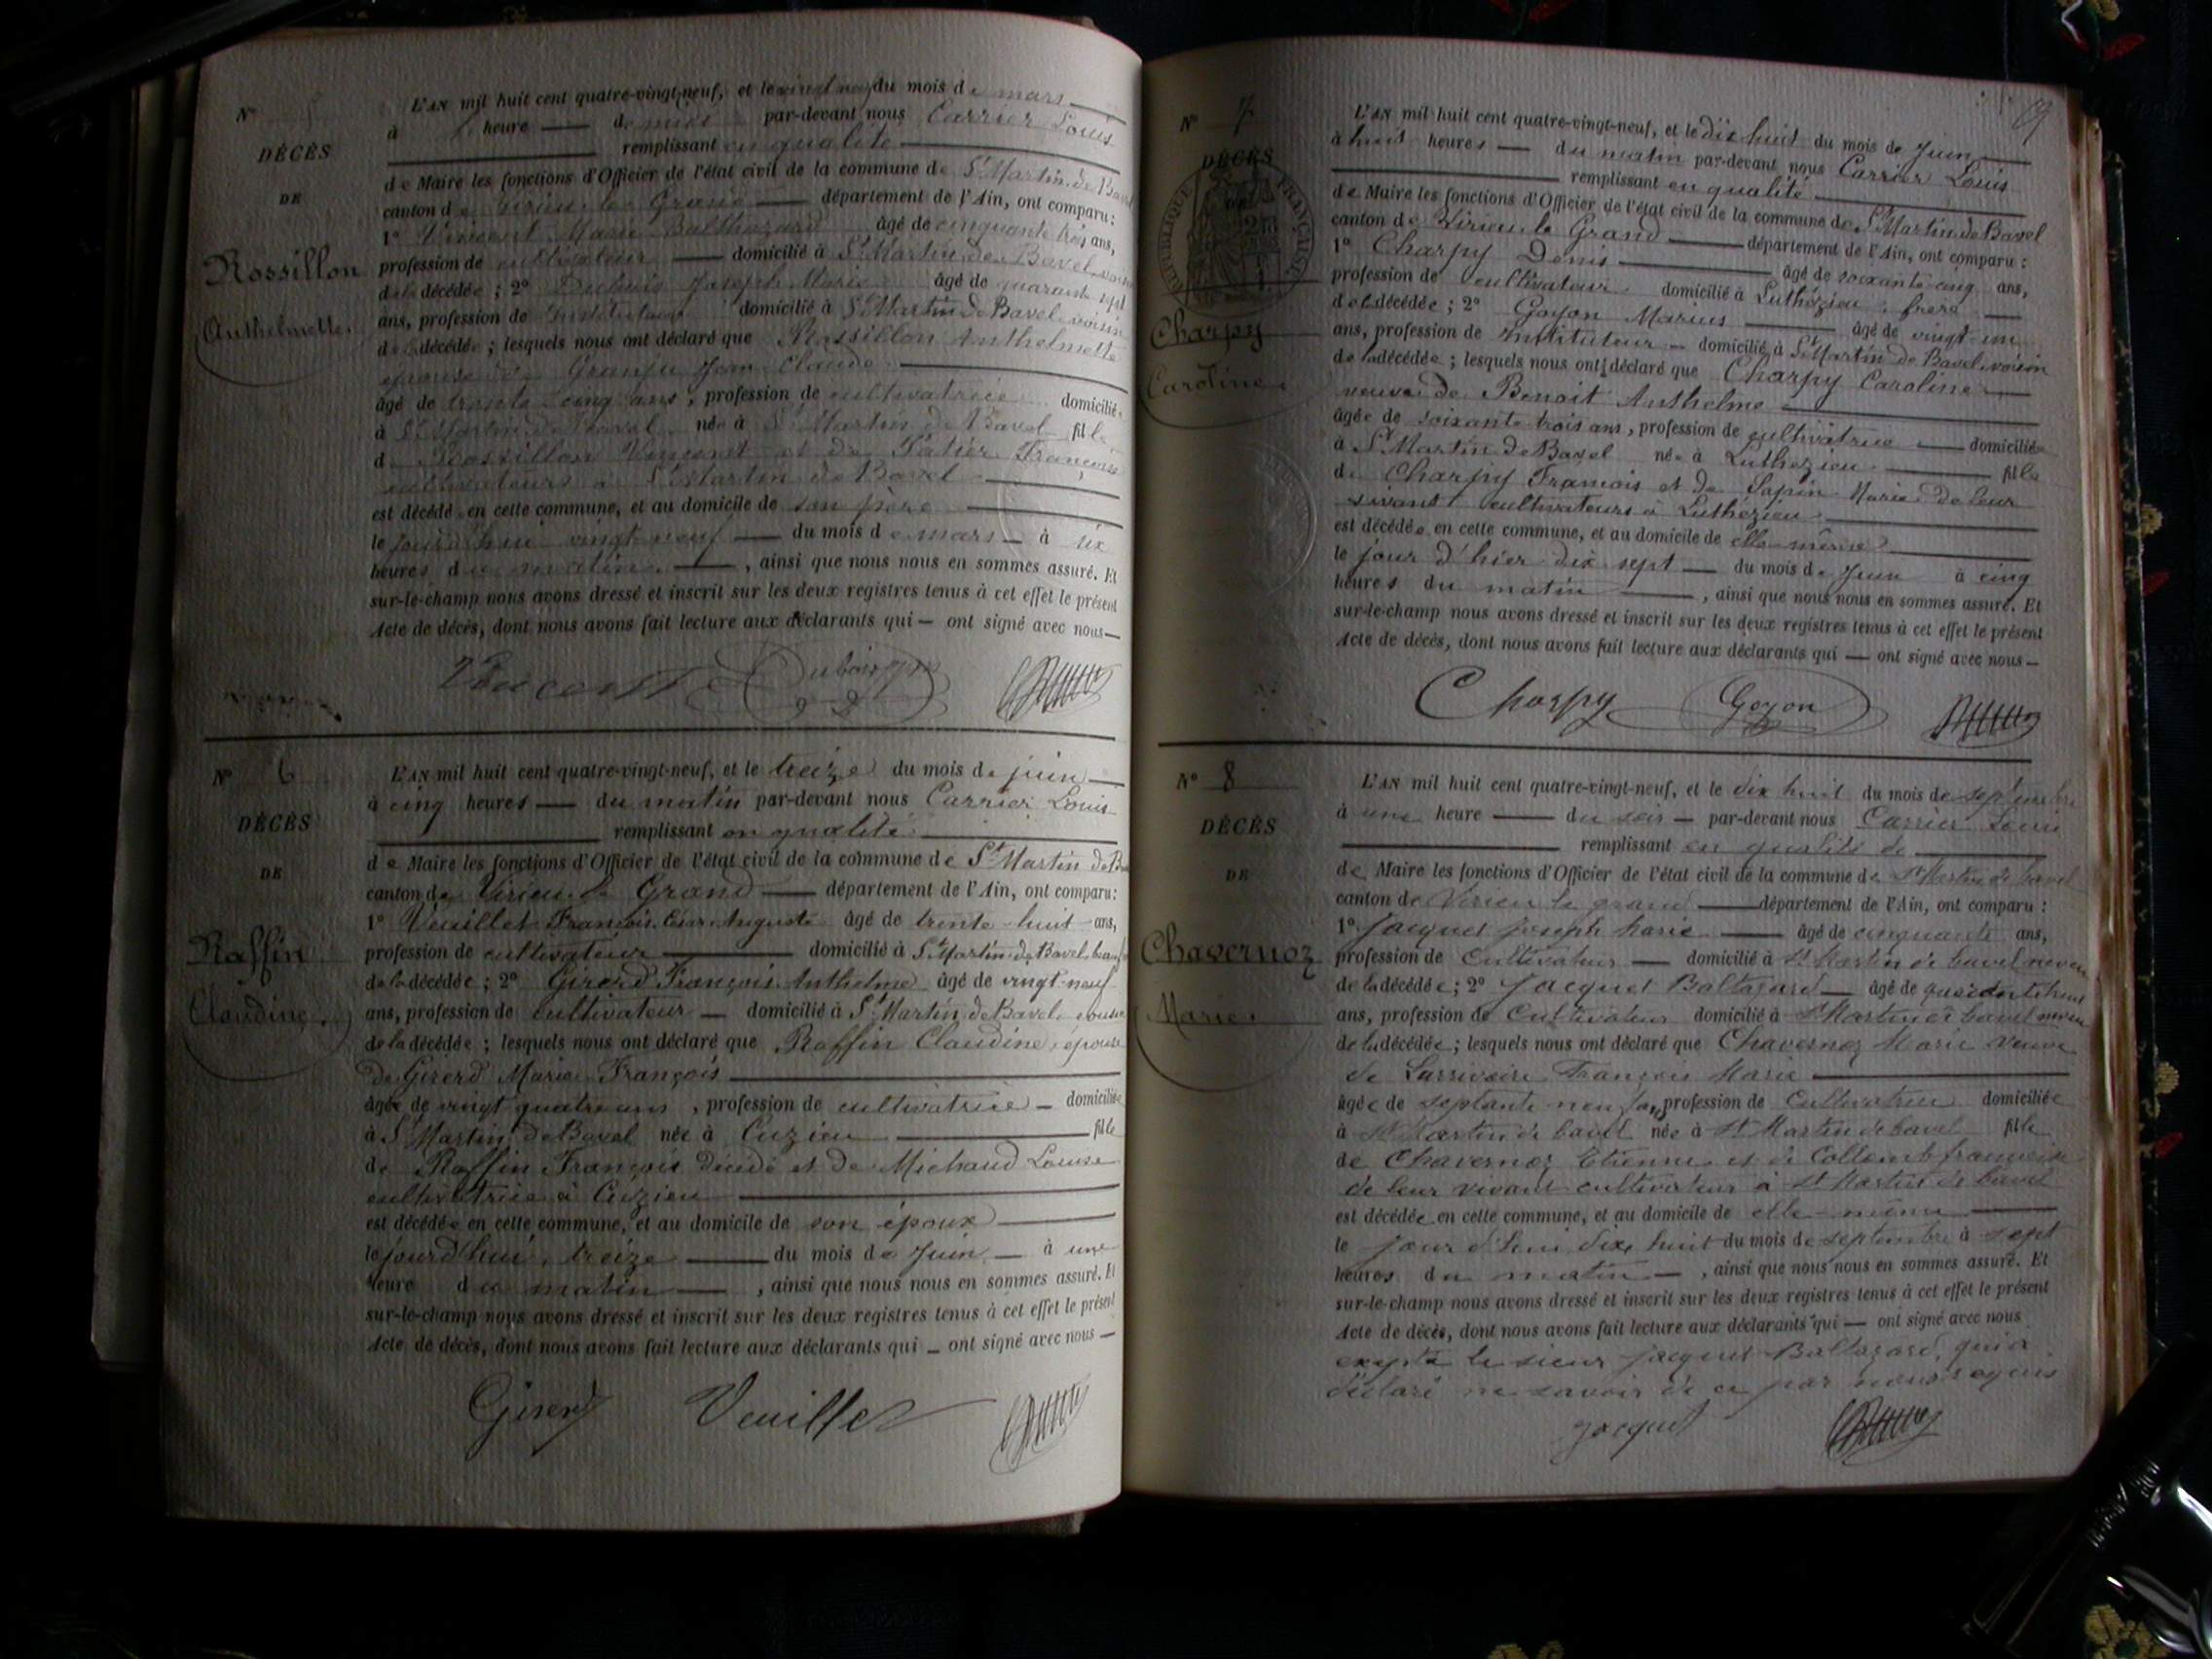 N° 5
DÉCÈS
DE
Rossillon
Anthelmette
L'AN mil huit cent quatre-vingt-neuf, et le vingt neuf du mois de mars
à heure de par-devant nous Carrier Louis
remplissant en qualité
de Maire les fonctions d'Officier de l'état civil de la commune de St Martin de Bavel
canton de Virieu le Grand département de l'Ain, ont comparu:
1° Vincent Marie Balthazard âgé de cinquante trois ans,
profession de cultivateur domicilié à St Martin de Bavel voisin
de la décédée ; 2° Dubois Joseph Marie âgé de quarante sept
ans, profession de Instituteur domicilié à St Martin de Bavel voisin
de la décédée ; lesquels nous ont déclaré que Rossillon Anthelmette
épouse de Jean Claude
âgé de trente cinq ans, profession de cultivatrice domiciliée
à St Martin de Bavel née à St Martin de Bavel fille
de Rossillon Vincent et de Françoise
cultivateurs à St Martin de Bavel
est décédé en cette commune, et au domicile de son père
le jourd'hui vingt neuf du mois de mars à six
heures du matin, ainsi que nous nous en sommes assuré. Et
sur-le-champ nous avons dressé et inscrit sur les deux registres tenus à cet effet le présent
Acte de décès, dont nous avons fait lecture aux déclarants qui — ont signé avec nous—
Vincent Dubois
N° 6
DÉCÈS
DE
Raffin
Claudine
L'AN mil huit cent quatre-vingt-neuf, et le treize du mois de juin
à cinq heures du matin par-devant nous Carrier Louis
remplissant en qualité
de Maire les fonctions d'Officier de l'état civil de la commune de St Martin de Ba
canton de Virieu le Grand département de l'Ain, ont comparu:
1° Veuillet François César Auguste âgé de trente-huit ans,
profession de cultivateur domicilié à St Martin de Bavel beau f
de la décédée ; 2° Girerd François Anthelme âgé de vingt-neuf
ans, profession de cultivateur — domicilié à St Martin de Bavel cousin
de la décédée ; lesquels nous ont déclaré que Raffin Claudine, épouse
de Girerd Marie François
âgée de vingt quatre ans, profession de cultivatrice — domiciliée
à St Martin de Bavel née à Cuzieu fille
de Raffin François décédé et de Michaud Louise
cultivatrice à Cuzieu
est décédée en cette commune, et au domicile de son époux
le jourd'hui, treize du mois de Juin — à une
heure du matin, ainsi que nous nous en sommes assuré. Et
sur-le-champ nous avons dressé et inscrit sur les deux registres tenus à cet effet le présent
Acte de décès, dont nous avons fait lecture aux déclarants qui — ont signé avec nous —
Girerd Veuillet
N° 7
DÉCÈS
RÉPUBLIQUE FRANÇAISE
Charpy
Caroline
L'AN mil huit cent quatre-vingt-neuf, et le dix huit du mois de Juin
à huit heures — du matin par-devant nous Carrier Louis
remplissant en qualité
de Maire les fonctions d'Officier de l'état civil de la commune de St Martin de Bavel
canton de Virieu le Grand département de l'Ain, ont comparu :
1° Charpy Denis âgé de soixante-cinq ans,
profession de cultivateur domicilié à Luthézieu, frère
de la décédée ; 2° Goyon Marius âgé de vingt un
ans, profession de Instituteur — domicilié à St Martin de Bavel voisin
de la décédée ; lesquels nous ont déclaré que Charpy Caroline
veuve de Benoit Anthelme
âgée de soixante trois ans, profession de cultivatrice domiciliée
à St Martin de Bavel née à Luthézieu fille
de Charpy François et de Sapin Marie de leur
vivant cultivateurs à Luthézieu
est décédée en cette commune, et au domicile de elle-même
le jour d'hier dix sept du mois de Juin à cinq
heures du matin, ainsi que nous nous en sommes assuré. Et
sur-le-champ nous avons dressé et inscrit sur les deux registres tenus à cet effet le présent
Acte de décès, dont nous avons fait lecture aux déclarants qui — ont signé avec nous —
Charpy Goyon
N° 8
DÉCÈS
DE
Chavernoz
Marie
L'AN mil huit cent quatre-vingt-neuf, et le dix huit du mois de septembre
à une heure du soir — par-devant nous Carrier Louis
remplissant en qualité de
de Maire les fonctions d'Officier de l'état civil de la commune de St Martin de bavel
canton de Virieu le grand département de l'Ain, ont comparu :
1° Jacquet Joseph Marie âgé de cinquante ans,
profession de Cultivateur — domicilié à St Martin de bavel neveu
de la décédée ; 2° Jacquet Baltazard — âgé de quarante huit
ans, profession de Cultivateur domicilié à St Martin de bavel neveu
de la décédée ; lesquels nous ont déclaré que Chavernoz Marie veuve
de Larrivoire François Marie
âgée de septante neuf ans, profession de Cultivatrice domiciliée
à St Martin de bavel née à St Martin de bavel fille
de Chavernoz Etienne et de Collomb françoise
de leur vivant cultivateur à St Martin de bavel
est décédée en cette commune, et au domicile de elle-même
le jour d'hui dix huit du mois de septembre à sept
heures du matin —, ainsi que nous nous en sommes assuré. Et
sur-le-champ nous avons dressé et inscrit sur les deux registres tenus à cet effet le présent
Acte de décès, dont nous avons fait lecture aux déclarants qui — ont signé avec nous
excepté le sieur Jacquet Baltazard, qui a
déclaré ne savoir de ce par nous requis
Jacquet